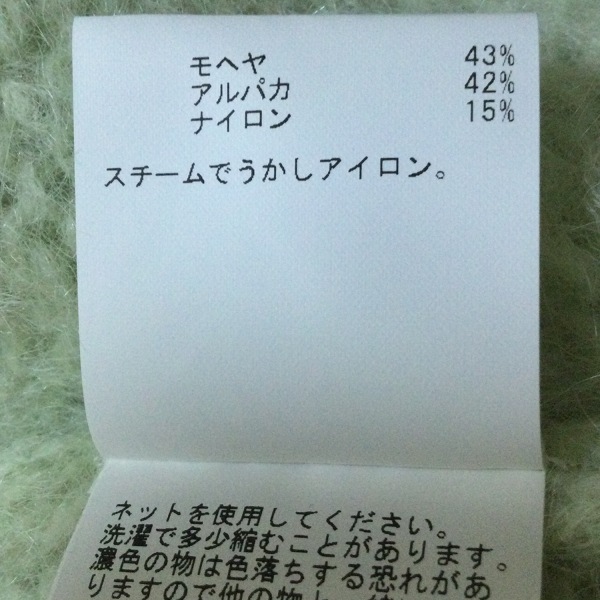 モヘヤ 43%
アルパカ 42%
ナイロン 15%
スチームでうかしアイロン。
ネットを使用してください。
洗濯で多少縮むことがあります。
濃色の物は色落ちする恐れがあ
りますので他の物と